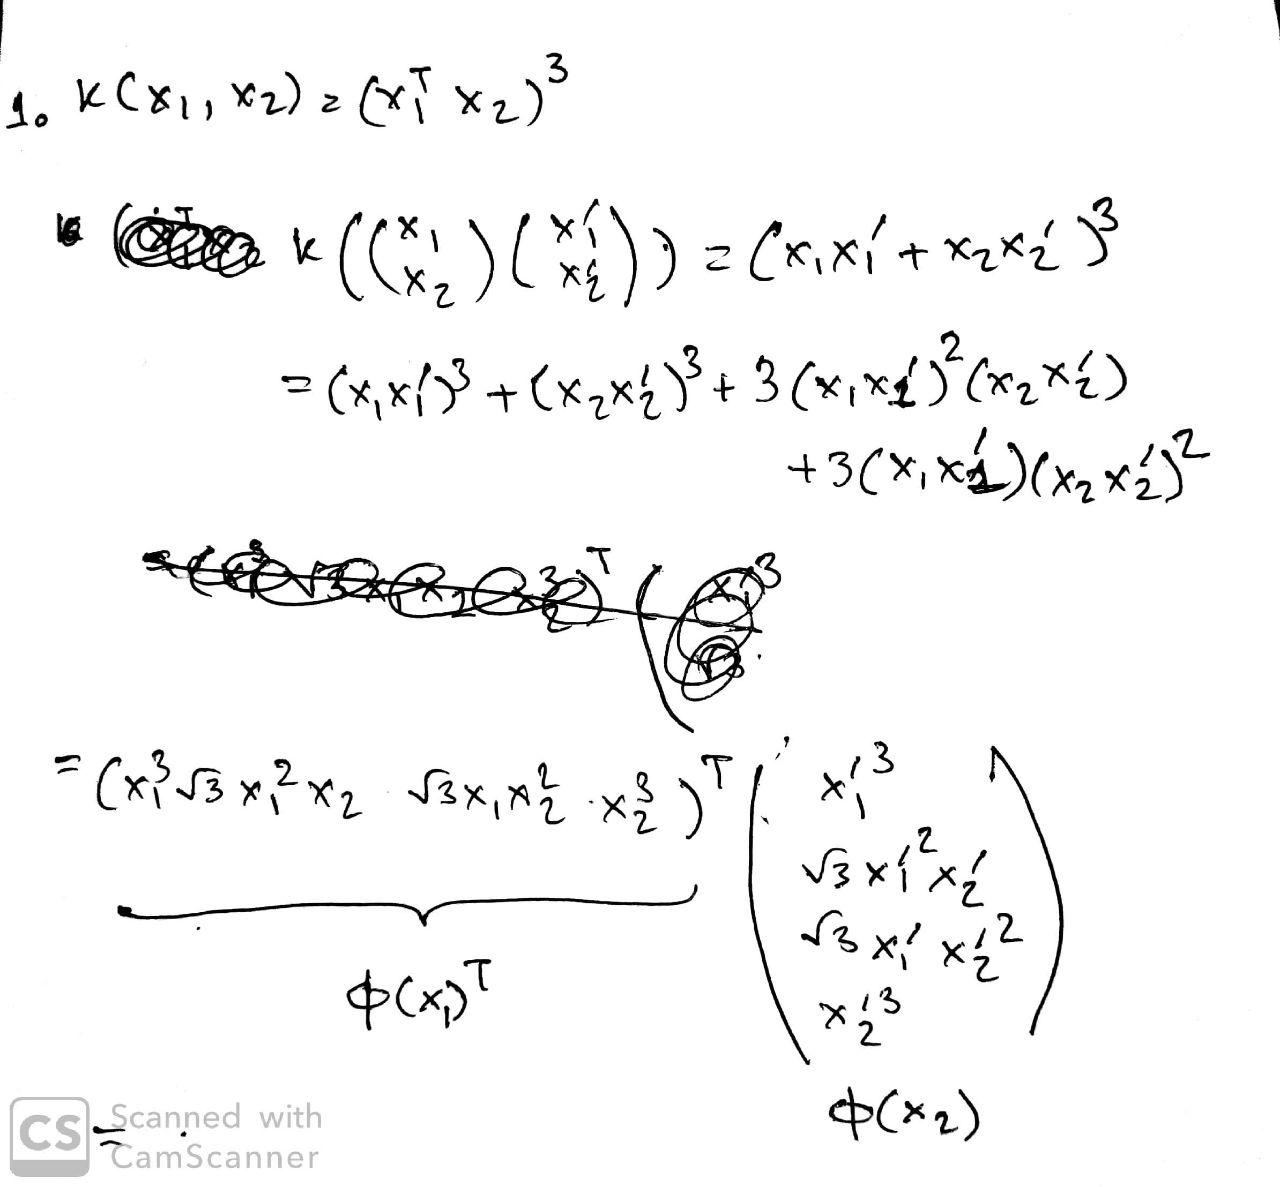 1. K(x₁, x₂) = (x₁ᵀ x₂)³
K((x₁ x₂)(x₁′ x₂′)) = (x₁x₁′ + x₂x₂′)³
= (x₁x₁′)³ + (x₂x₂′)³ + 3(x₁x₁′)²(x₂x₂′)
+3(x₁x₁′)(x₂x₂′)²
= (x₁³ √3 x₁²x₂ √3x₁x₂² x₂³)ᵀ
x₁′³
√3 x₁′²x₂′
√3 x₁′ x₂′²
x₂′³
ϕ(x₁)ᵀ
ϕ(x₂)
=
CS Scanned with
CamScanner